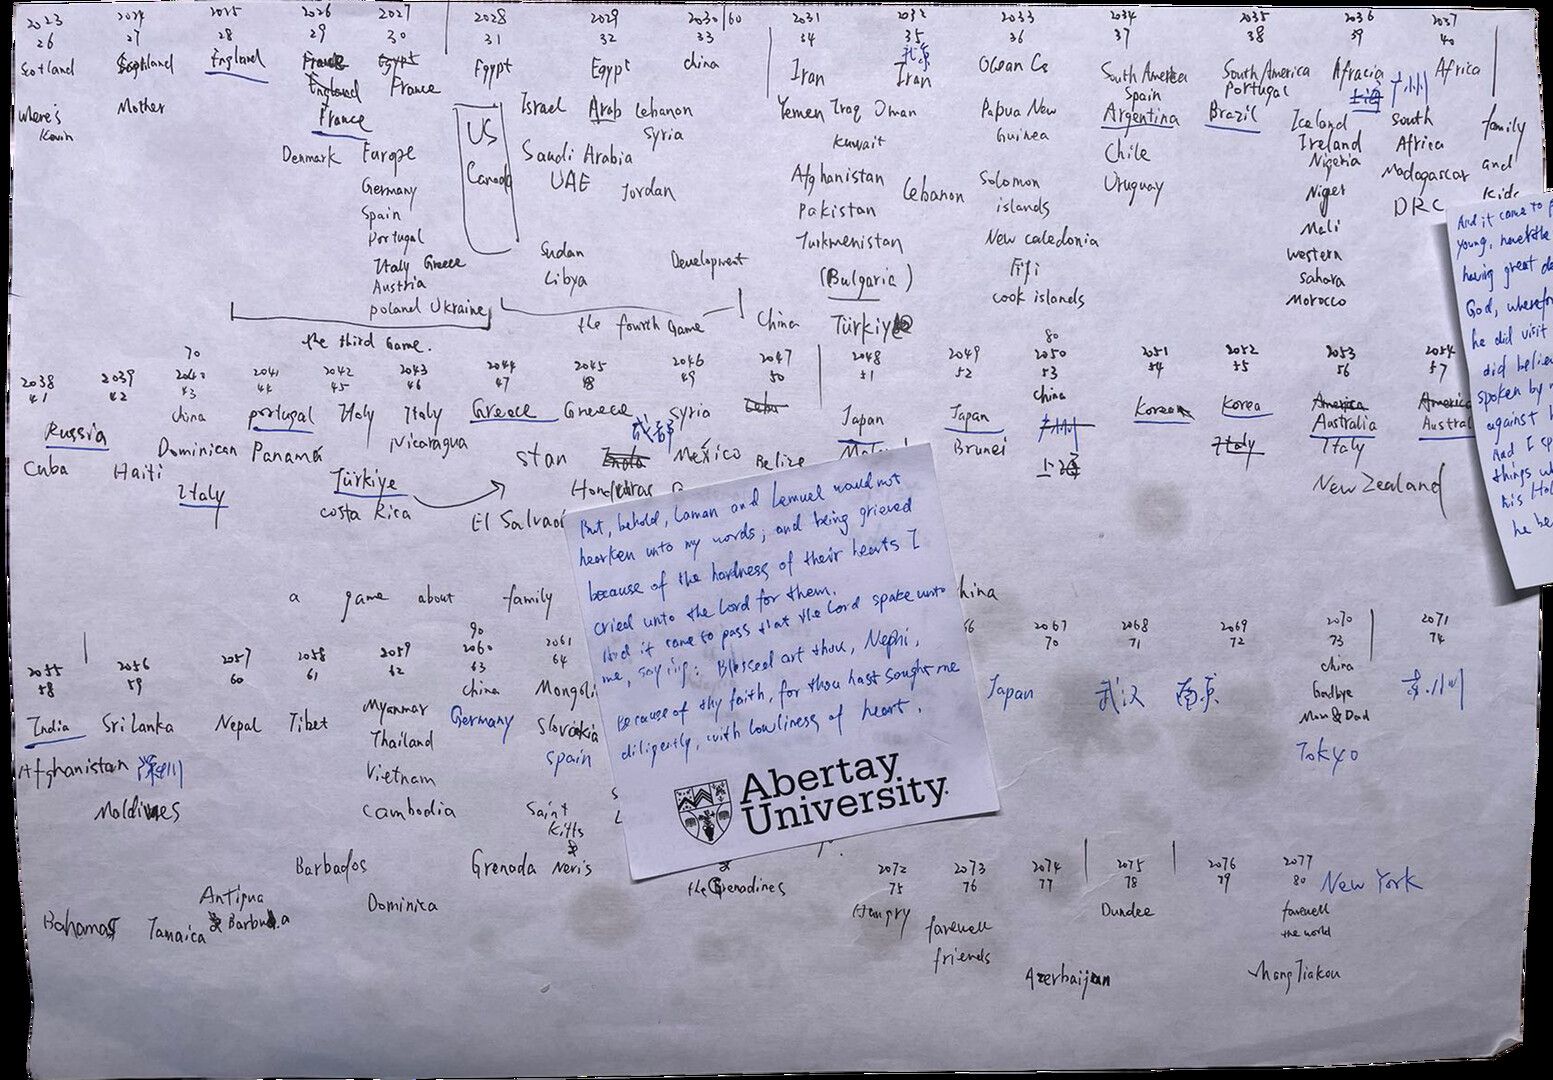 2023 2024 2025 2026 2027 2028 2029 2030/60 2031 2032 2033 2034 2035 2036 2037
26 27 28 29 30 31 32 33 34 35 36 37 38 39 40
Scotland Scotland England France Egypt Egypt Egypt China Iran 北京 Iran Ocean South America South America Africa Africa
England France Spain Portugal 上海 广州
where's Kevin Mother France US Israel Arab Lebanon Yemen Iraq Oman Papua New Guinea Argentina Brazil Iceland South Africa family
Syria Kuwait Ireland
Denmark Europe Canada Saudi Arabia Chile Nigeria and
Germany UAE Jordan Afghanistan Lebanon Solomon islands Uruguay Niger Madagascar kids
Spain Pakistan Mali DRC
Portugal Sudan Turkmenistan New Caledonia western
Italy Greece Libya Development (Bulgaria) Fiji sahara
Austria cook islands Morocco
poland Ukraine
the third Game. the fourth Game China Türkiye
70 80
2038 2039 2040 2041 2042 2043 2044 2045 2046 2047 2048 2049 2050 2051 2052 2053 2054
41 42 43 44 45 46 47 48 49 50 51 52 53 54 55 56 57
Russia China portugal Italy Italy Greece Greece Syria Cuba Japan Japan China Korea Korea America America
成都 广州 Italy Australia
Cuba Haiti Dominican Panama Nicaragua stan India Mexico Belize Brunei 上海 Italy
Italy Türkiye Honduras New Zealand
costa Rica El Salvador
a game about family
But, behold, Laman and Lemuel would not
hearken unto my words; and being grieved
because of the hardness of their hearts I
cried unto the Lord for them.
And it came to pass that the Lord spake unto
me, saying: Blessed art thou, Nephi,
because of thy faith, for thou hast sought me
diligently, with lowliness of heart.
Abertay
University
And it came to
young, nevertheless
having great
God, wherefore
he did visit
did believe
spoken by
against
And I
things
his Holy
he
90
2055 2056 2057 2058 2059 2060 2061 2067 2068 2069 2070 2071
58 59 60 61 62 63 64 70 71 72 73 74
India Sri Lanka Nepal Tibet Myanmar China Japan 武汉 南京 China
Germany Slovakia Goodbye
Afghanistan 深圳 Thailand Spain Mom & Dad
Maldives Vietnam Tokyo
Cambodia Saint Kitts
Barbados Grenada & Nevis
the Grenadines
Antigua & Barbuda Dominica
Bahamas Jamaica
2072 2073 2074 2075 2076 2077
75 76 77 78 79 80 New York
Hungry farewell friends Dundee farewell the world
Azerbaijan Zhang Jiakou